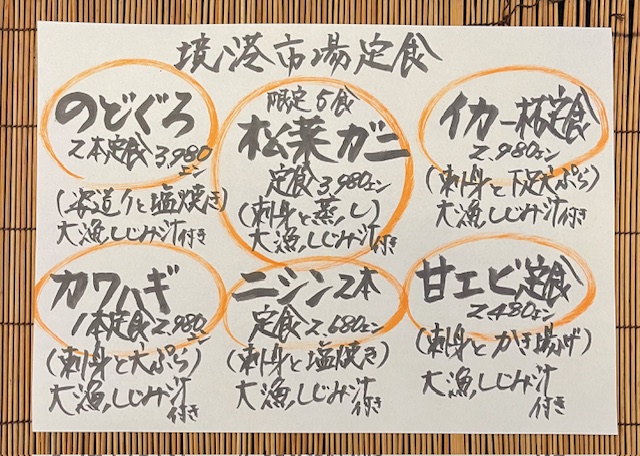 境港市場定食
のどぐろ
2本定食3,980
エン
(姿造りと塩焼き)
大漁しじみ汁付き
限定5食
松葉ガニ
定食3,980エン
(刺身と蒸し)
大漁しじみ汁
付き
イカ一杯定食
2,980エン
(刺身と下足天ぷら)
大漁しじみ汁付き
カワハギ
1本定食2,980エン
(刺身と天ぷら)
大漁しじみ汁
付き
ニシン2本
定食2,680エン
(刺身と塩焼き)
大漁しじみ汁
付き
甘エビ定食
2,480エン
(刺身とかき揚げ)
大漁しじみ汁
付き